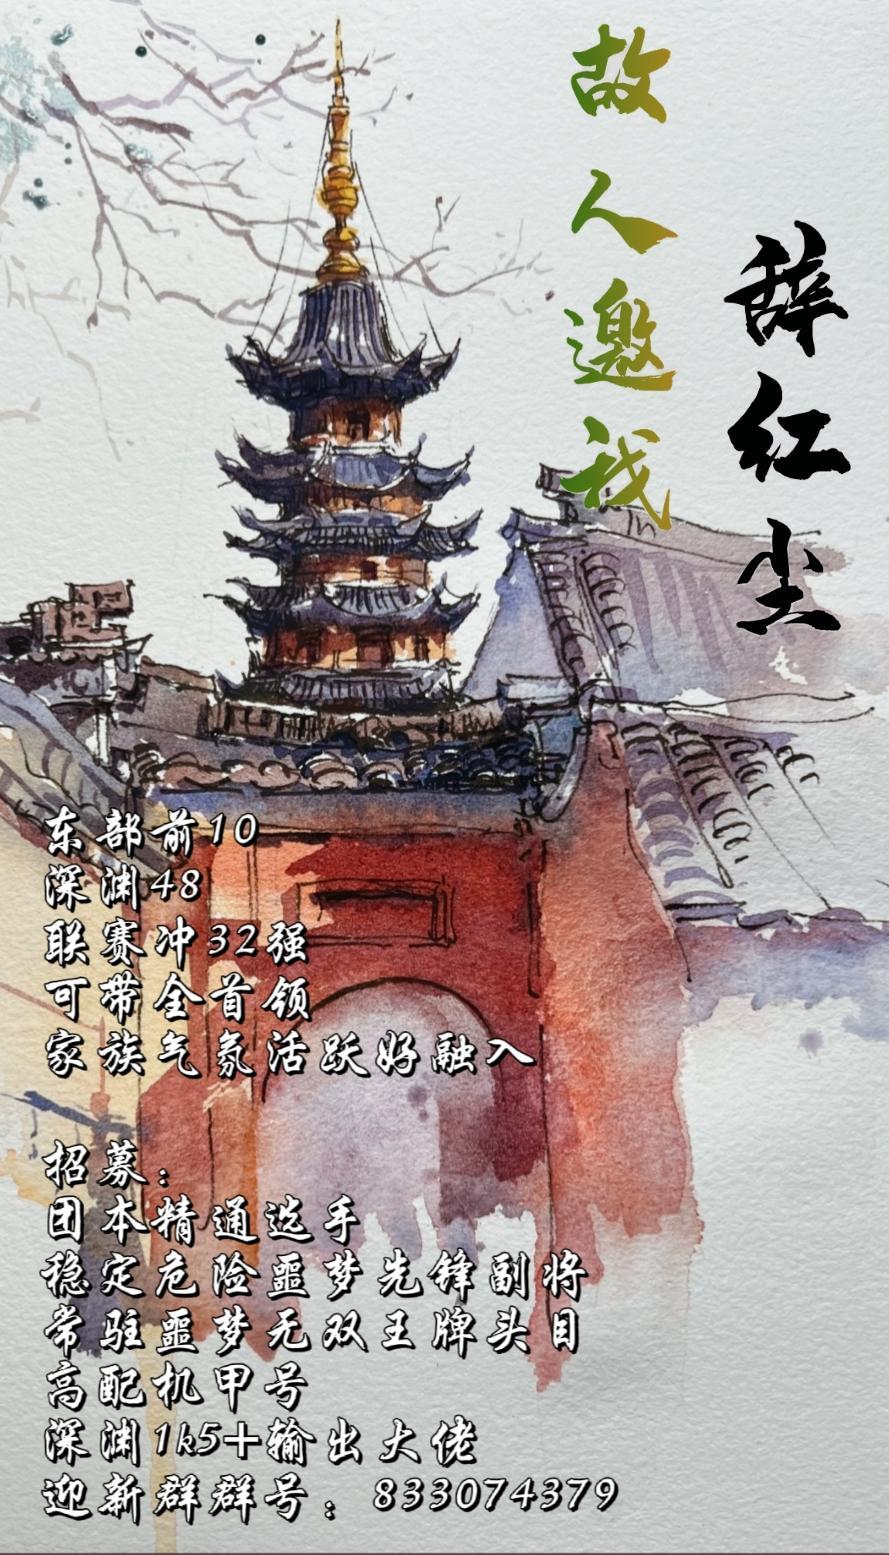 故人邀我
辞红尘
东部前10
深渊48
联赛冲32强
可带全首领
家族气氛活跃好融入
招募：
团本精通选手
稳定危险噩梦先锋副将
常驻噩梦无双王牌头目
高配机甲号
深渊1k5+输出大佬
迎新群群号：833074379